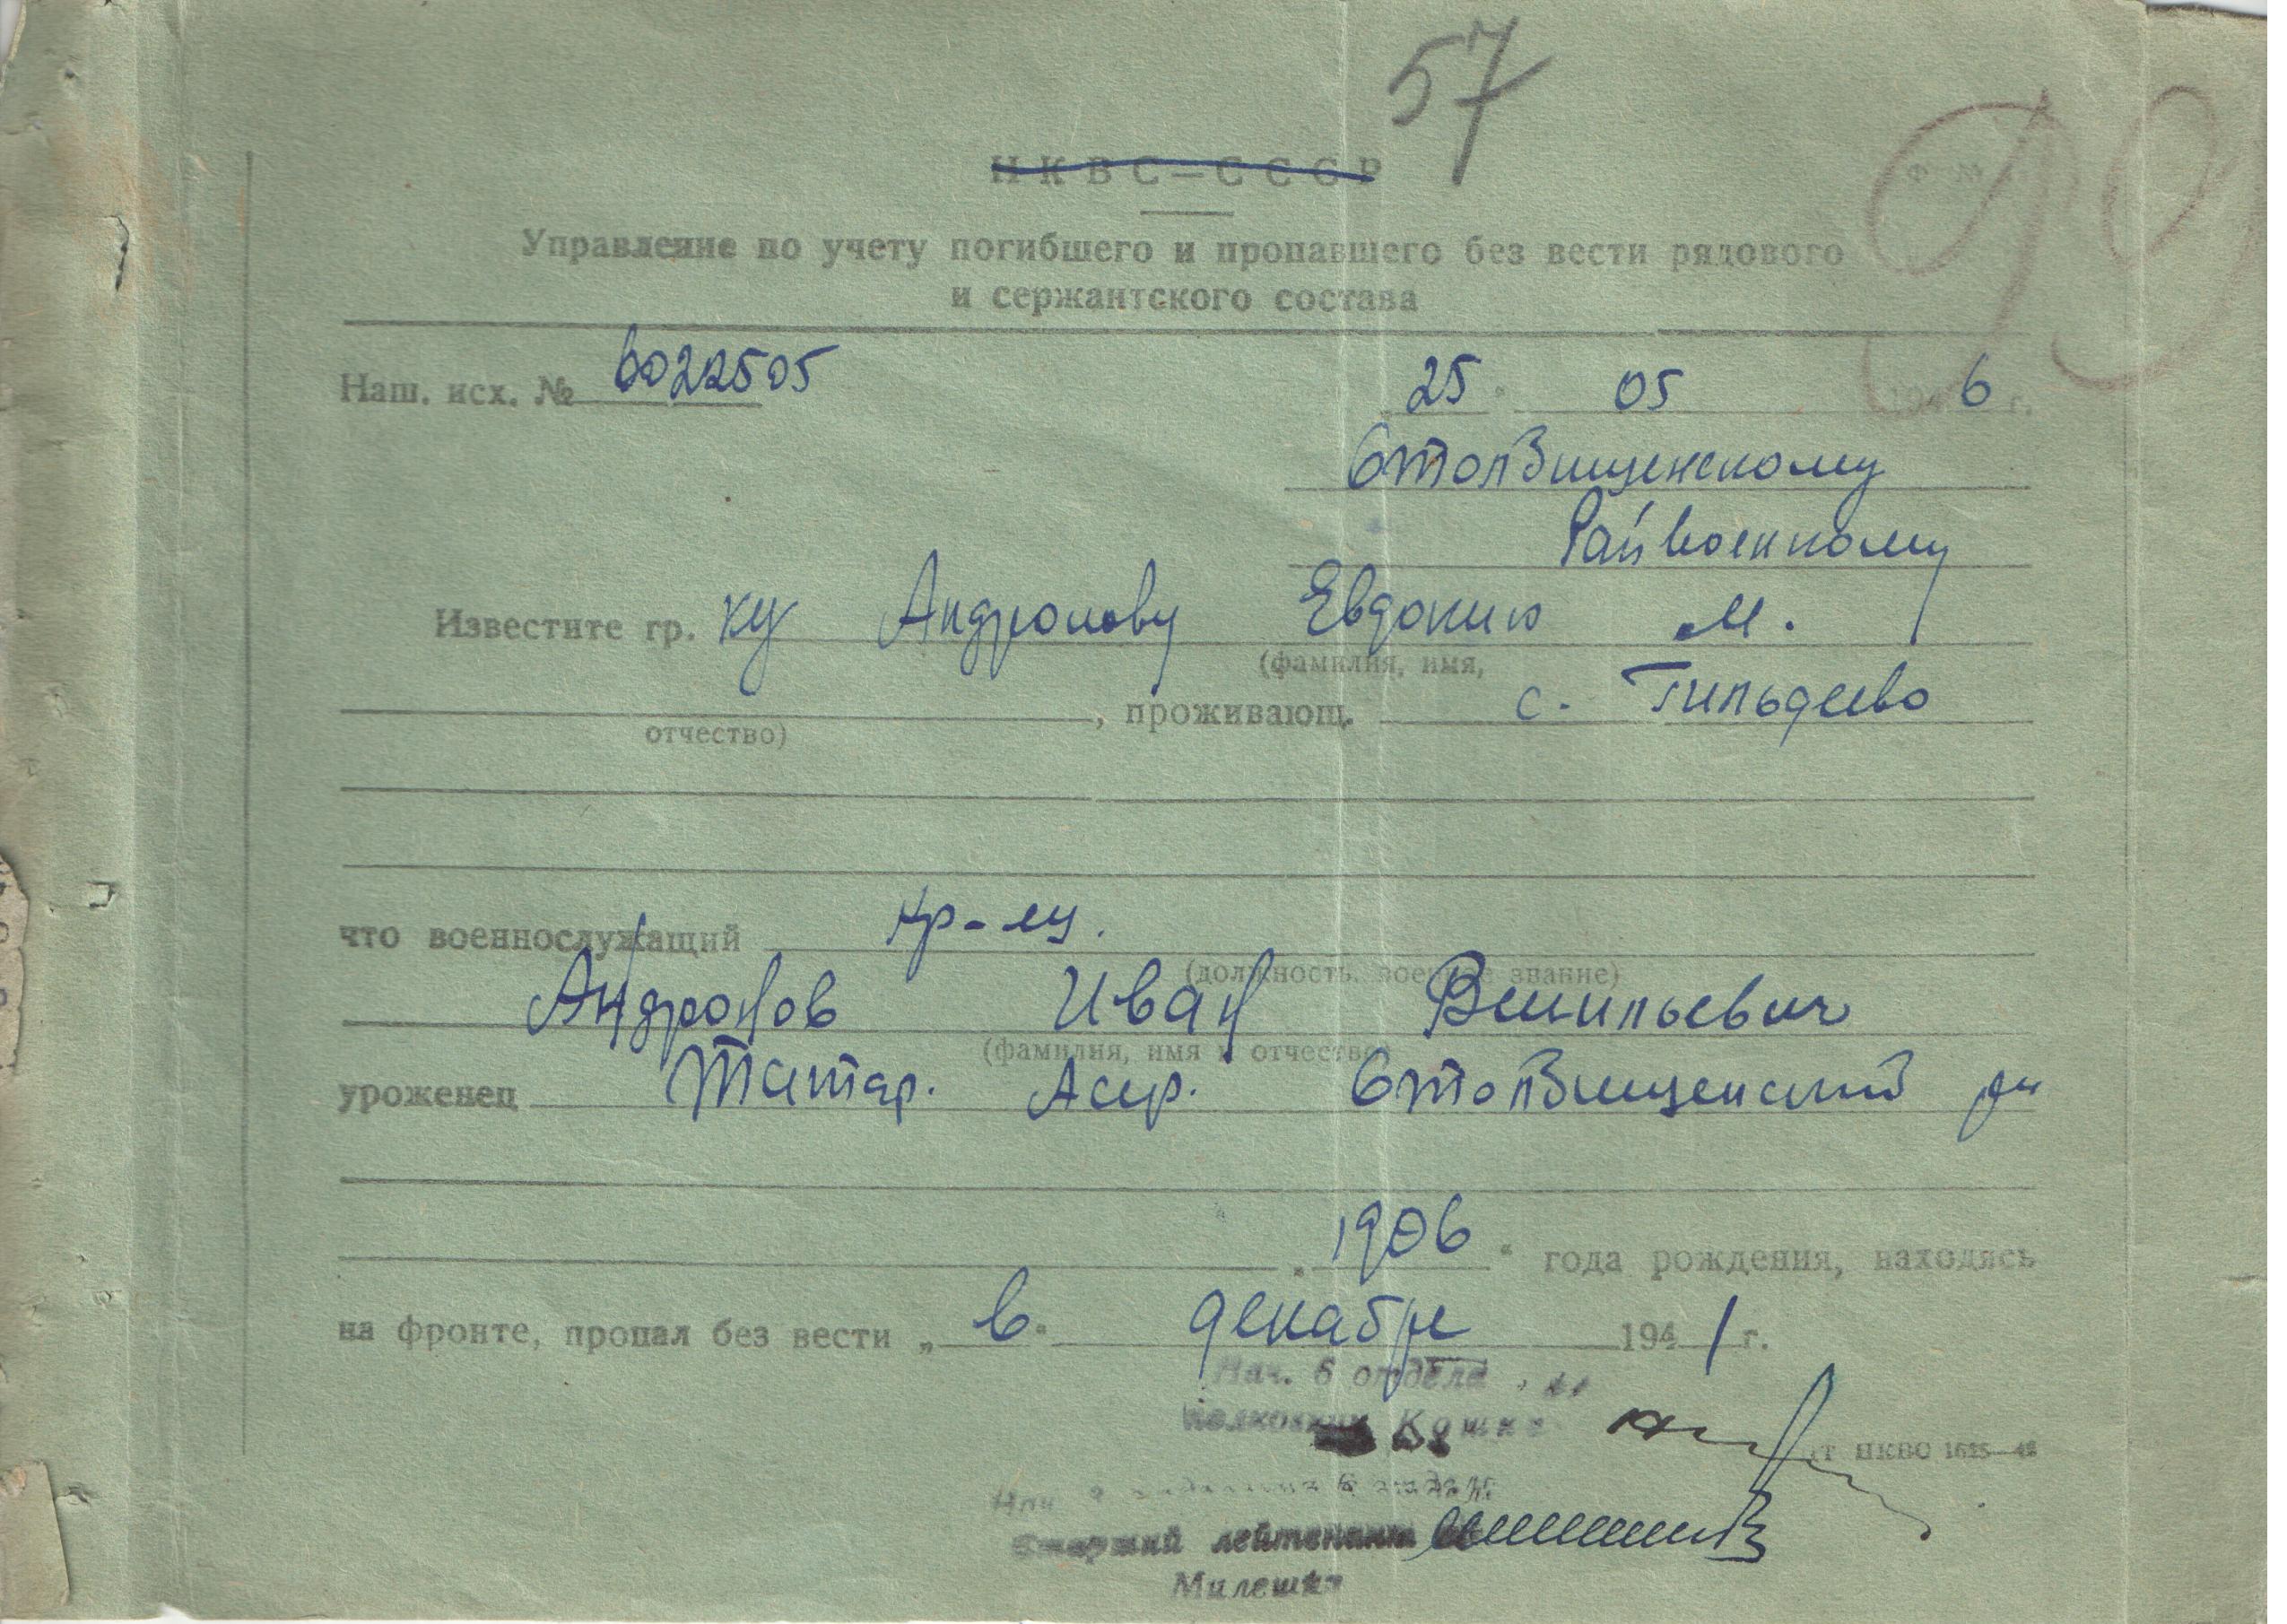 57
НКВС—СССР
Ф №
Управление по учету погибшего и пропавшего без вести рядового
и сержантского состава
Наш. исх. № 6022505 25 05 194 6 г.
Столбищенскому
Райвоенкому
Известите гр. ку Андронову Евдокию М.
(фамилия, имя,
отчество) , проживающ. с. Тильдеево
что военнослужащий кр-ец.
(должность, военное звание)
Андронов Иван Васильевич
(фамилия, имя и отчество)
уроженец Татар. Асср. Столбищенский рн
„1906“ года рождения, находясь
на фронте, пропал без вести „в“ декабре 1941 г.
Нач. 6 отдела
полковник
НКВО 1625—42
6 отдела
Старший лейтенант
Милешкн